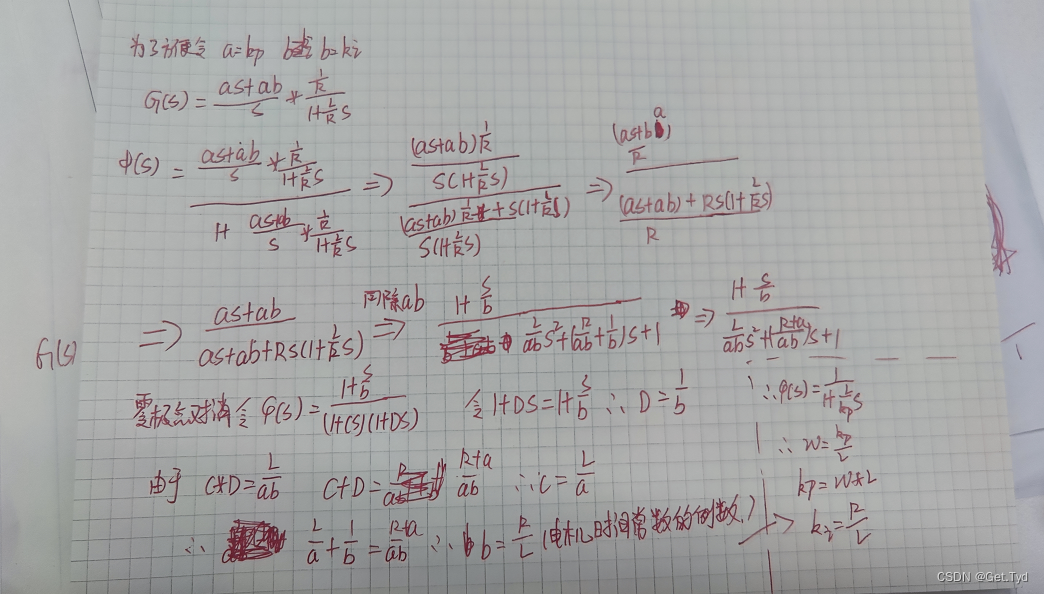 为了方便令 a=kp b=ki
G(s) = (as+ab)/s * (1/R)/(1+(L/R)s)
φ(s) = [(as+ab)/s * (1/R)/(1+(L/R)s)] / [1+ (as+ab)/s * (1/R)/(1+(L/R)s)] => [(as+ab)(1/R) / (s(1+(L/R)s))] / [((as+ab)(1/R) + s(1+(L/R)s)) / (s(1+(L/R)s))] => [(as+ba)/R] / [((as+ab)+Rs(1+(L/R)s))/R]
G(s) => (as+ab)/(as+ab+Rs(1+(L/R)s)) 同除ab => (1+s/b)/((L/ab)s²+(R/ab+1/b)s+1) => (1+s/b)/((L/ab)s²+((R+a)/ab)s+1)
零极点对消令 φ(s) = (1+s/b)/((1+Cs)(1+Ds)) 令 1+DS=1+s/b ∴ D=1/b
由于 C*D=L/ab C+D=(R+a)/ab ∴C=L/a
∴ L/a+1/b=(R+a)/ab ∴ b=R/L (电机时间常数的倒数.)
∴φ(s)=1/(1+(L/kp)s)
∴ W=kp/L
kp=W*L
=> ki=R/L
CSDN @Get.Tyd